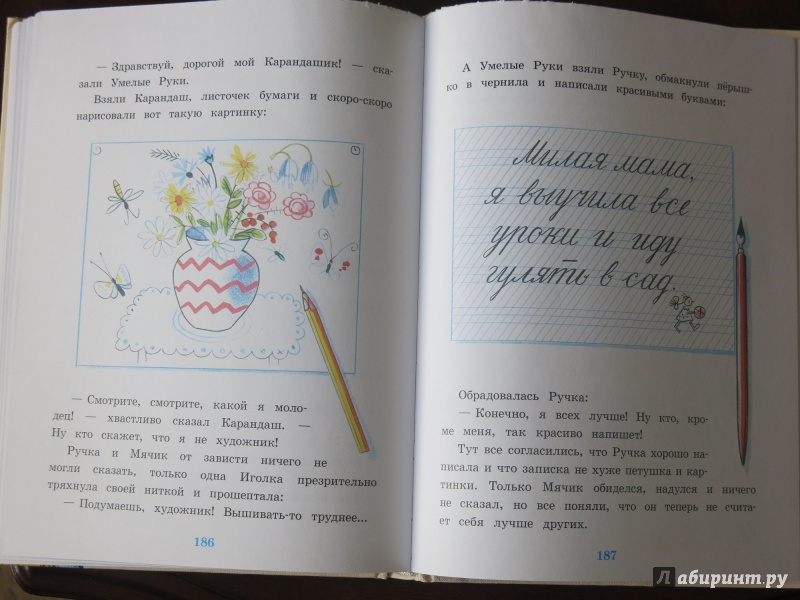 — Здравствуй, дорогой мой Карандашик! — ска-
зали Умелые Руки.
Взяли Карандаш, листочек бумаги и скоро-скоро
нарисовали вот такую картинку:
— Смотрите, смотрите, какой я моло-
дец! — хвастливо сказал Карандаш. —
Ну кто скажет, что я не художник!
Ручка и Мячик от зависти ничего не
могли сказать, только одна Иголка презрительно
тряхнула своей ниткой и прошептала:
— Подумаешь, художник! Вышивать-то труднее...
186
А Умелые Руки взяли Ручку, обмакнули пёрыш-
ко в чернила и написали красивыми буквами:
Милая мама,
я выучила все
уроки и иду
гулять в сад.
Обрадовалась Ручка:
— Конечно, я всех лучше! Ну кто, кро-
ме меня, так красиво напишет!
Тут все согласились, что Ручка хорошо на-
писала и что записка не хуже петушка и кар-
тинки. Только Мячик обиделся, надулся и ничего
не сказал, но все поняли, что он теперь не счита-
ет себя лучше других.
187
Лабиринт.ру